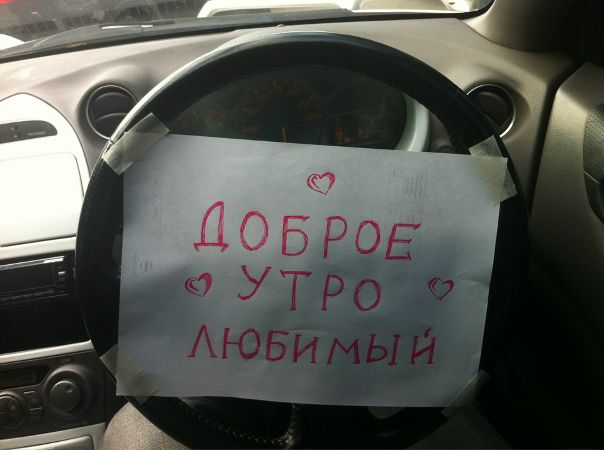 ДОБРОЕ
УТРО
ЛЮБИМЫЙ